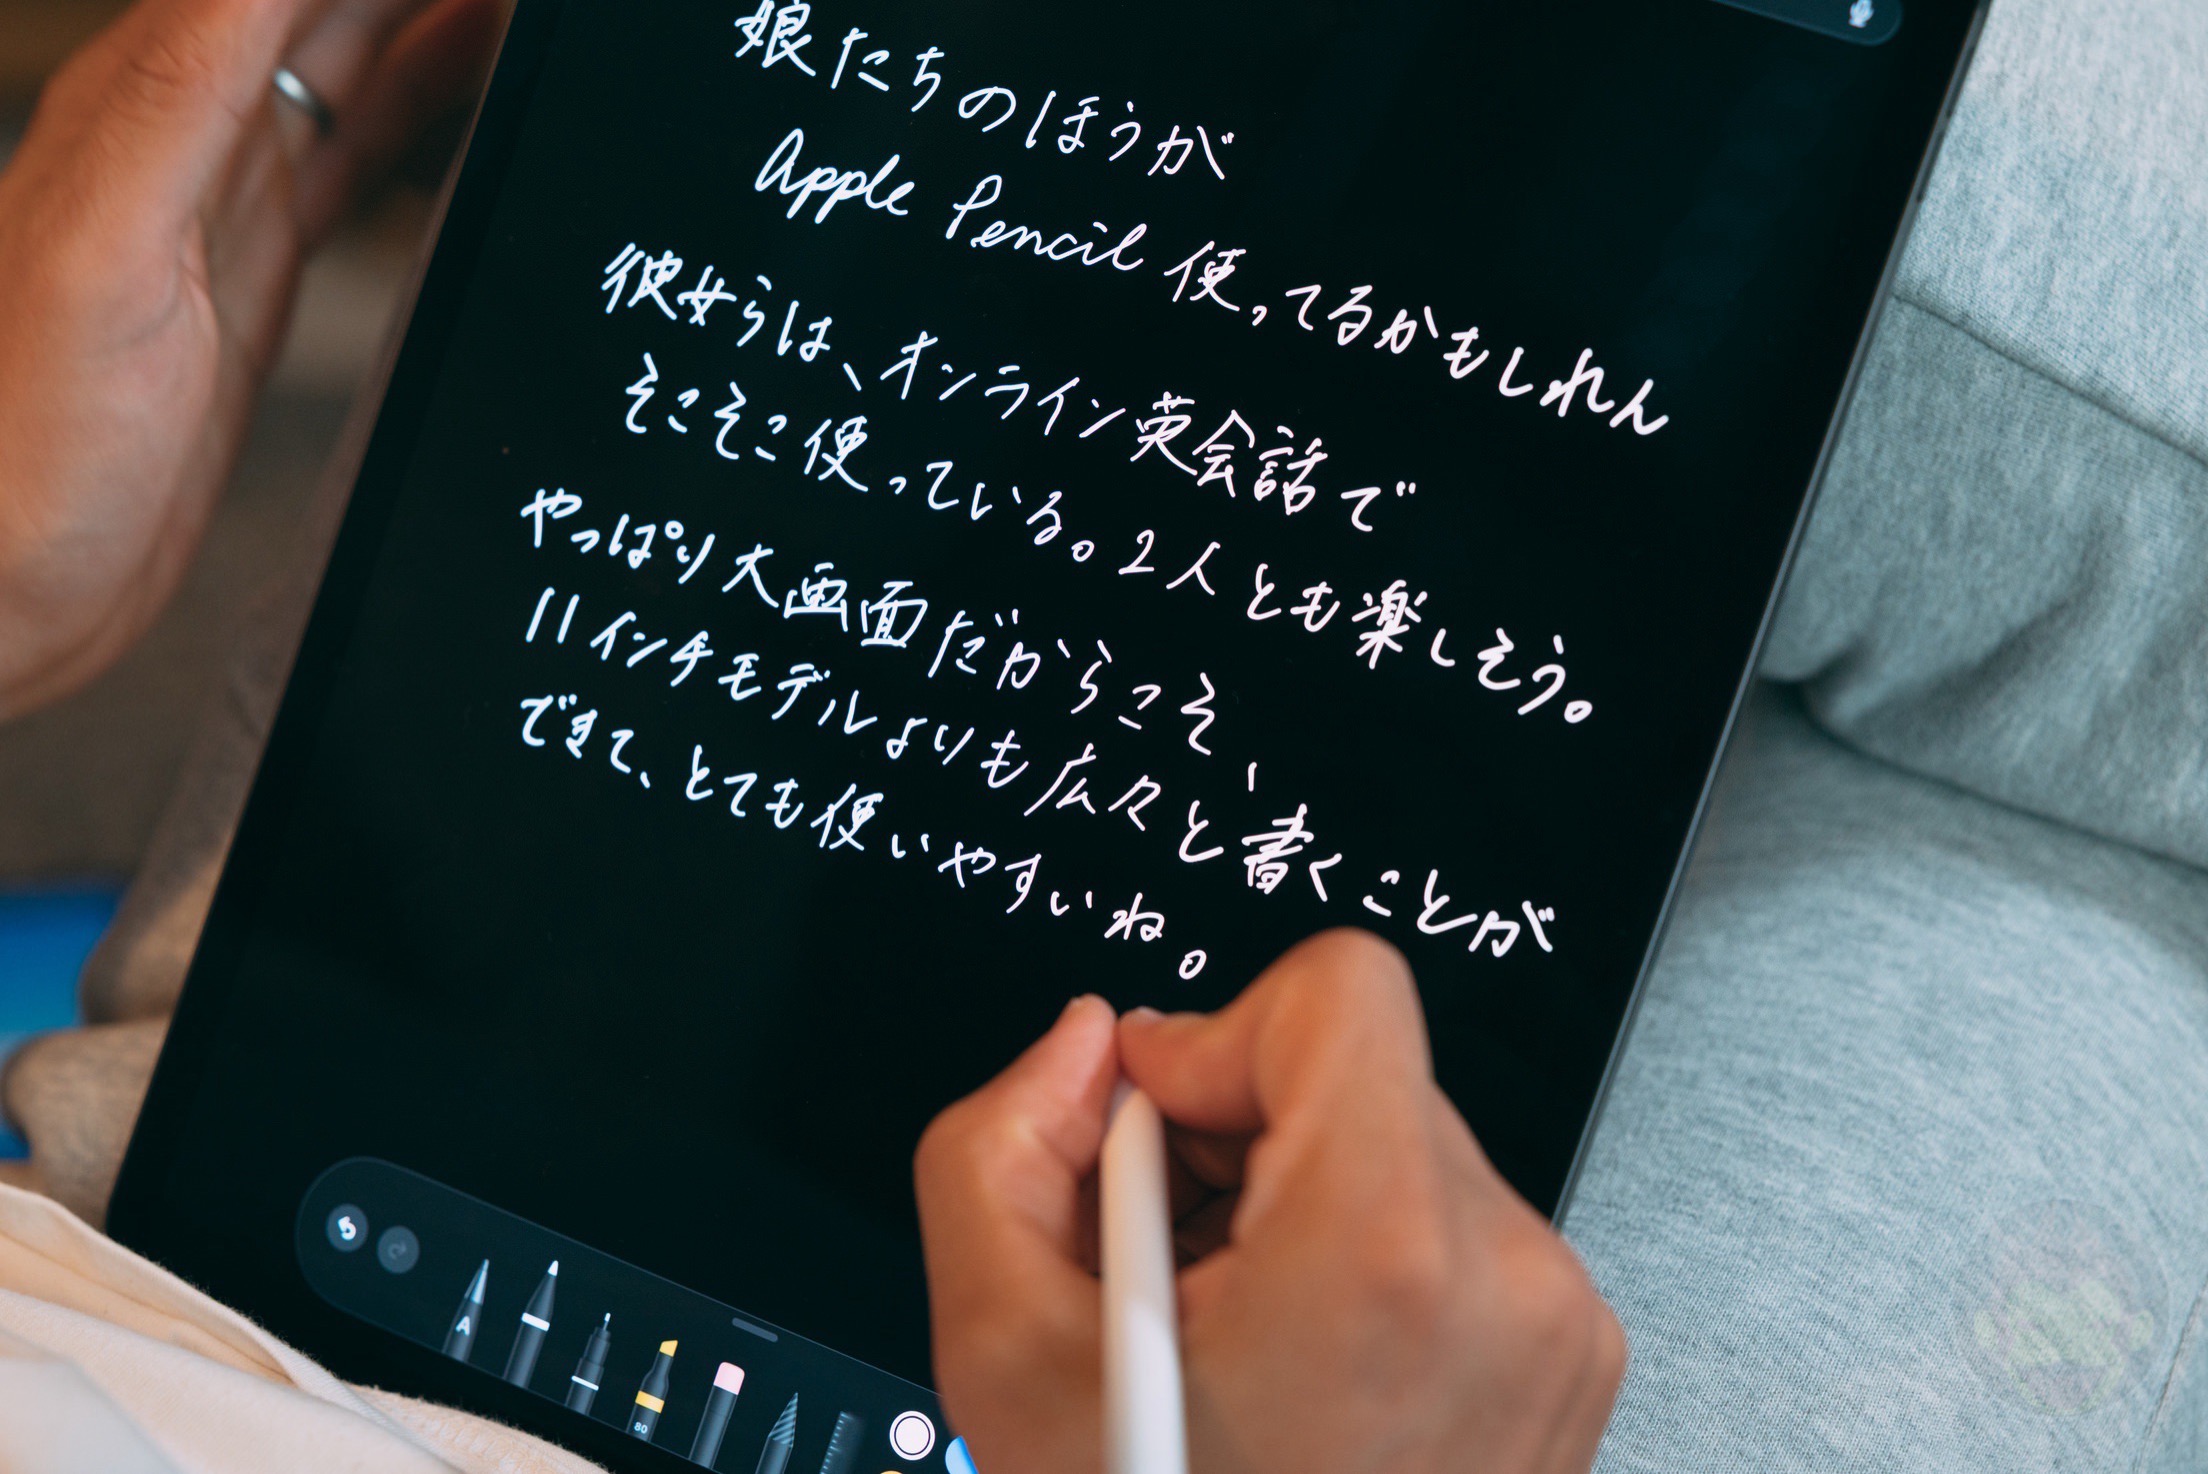 娘たちのほうが
Apple Pencil 使ってるかもしれん
彼女らは、オンライン英会話で
そこそこ使っている。2人とも楽しそう。
やっぱり大画面だからこそ、
11インチモデルよりも広々と書くことが
できて、とても使いやすいね。
A
80